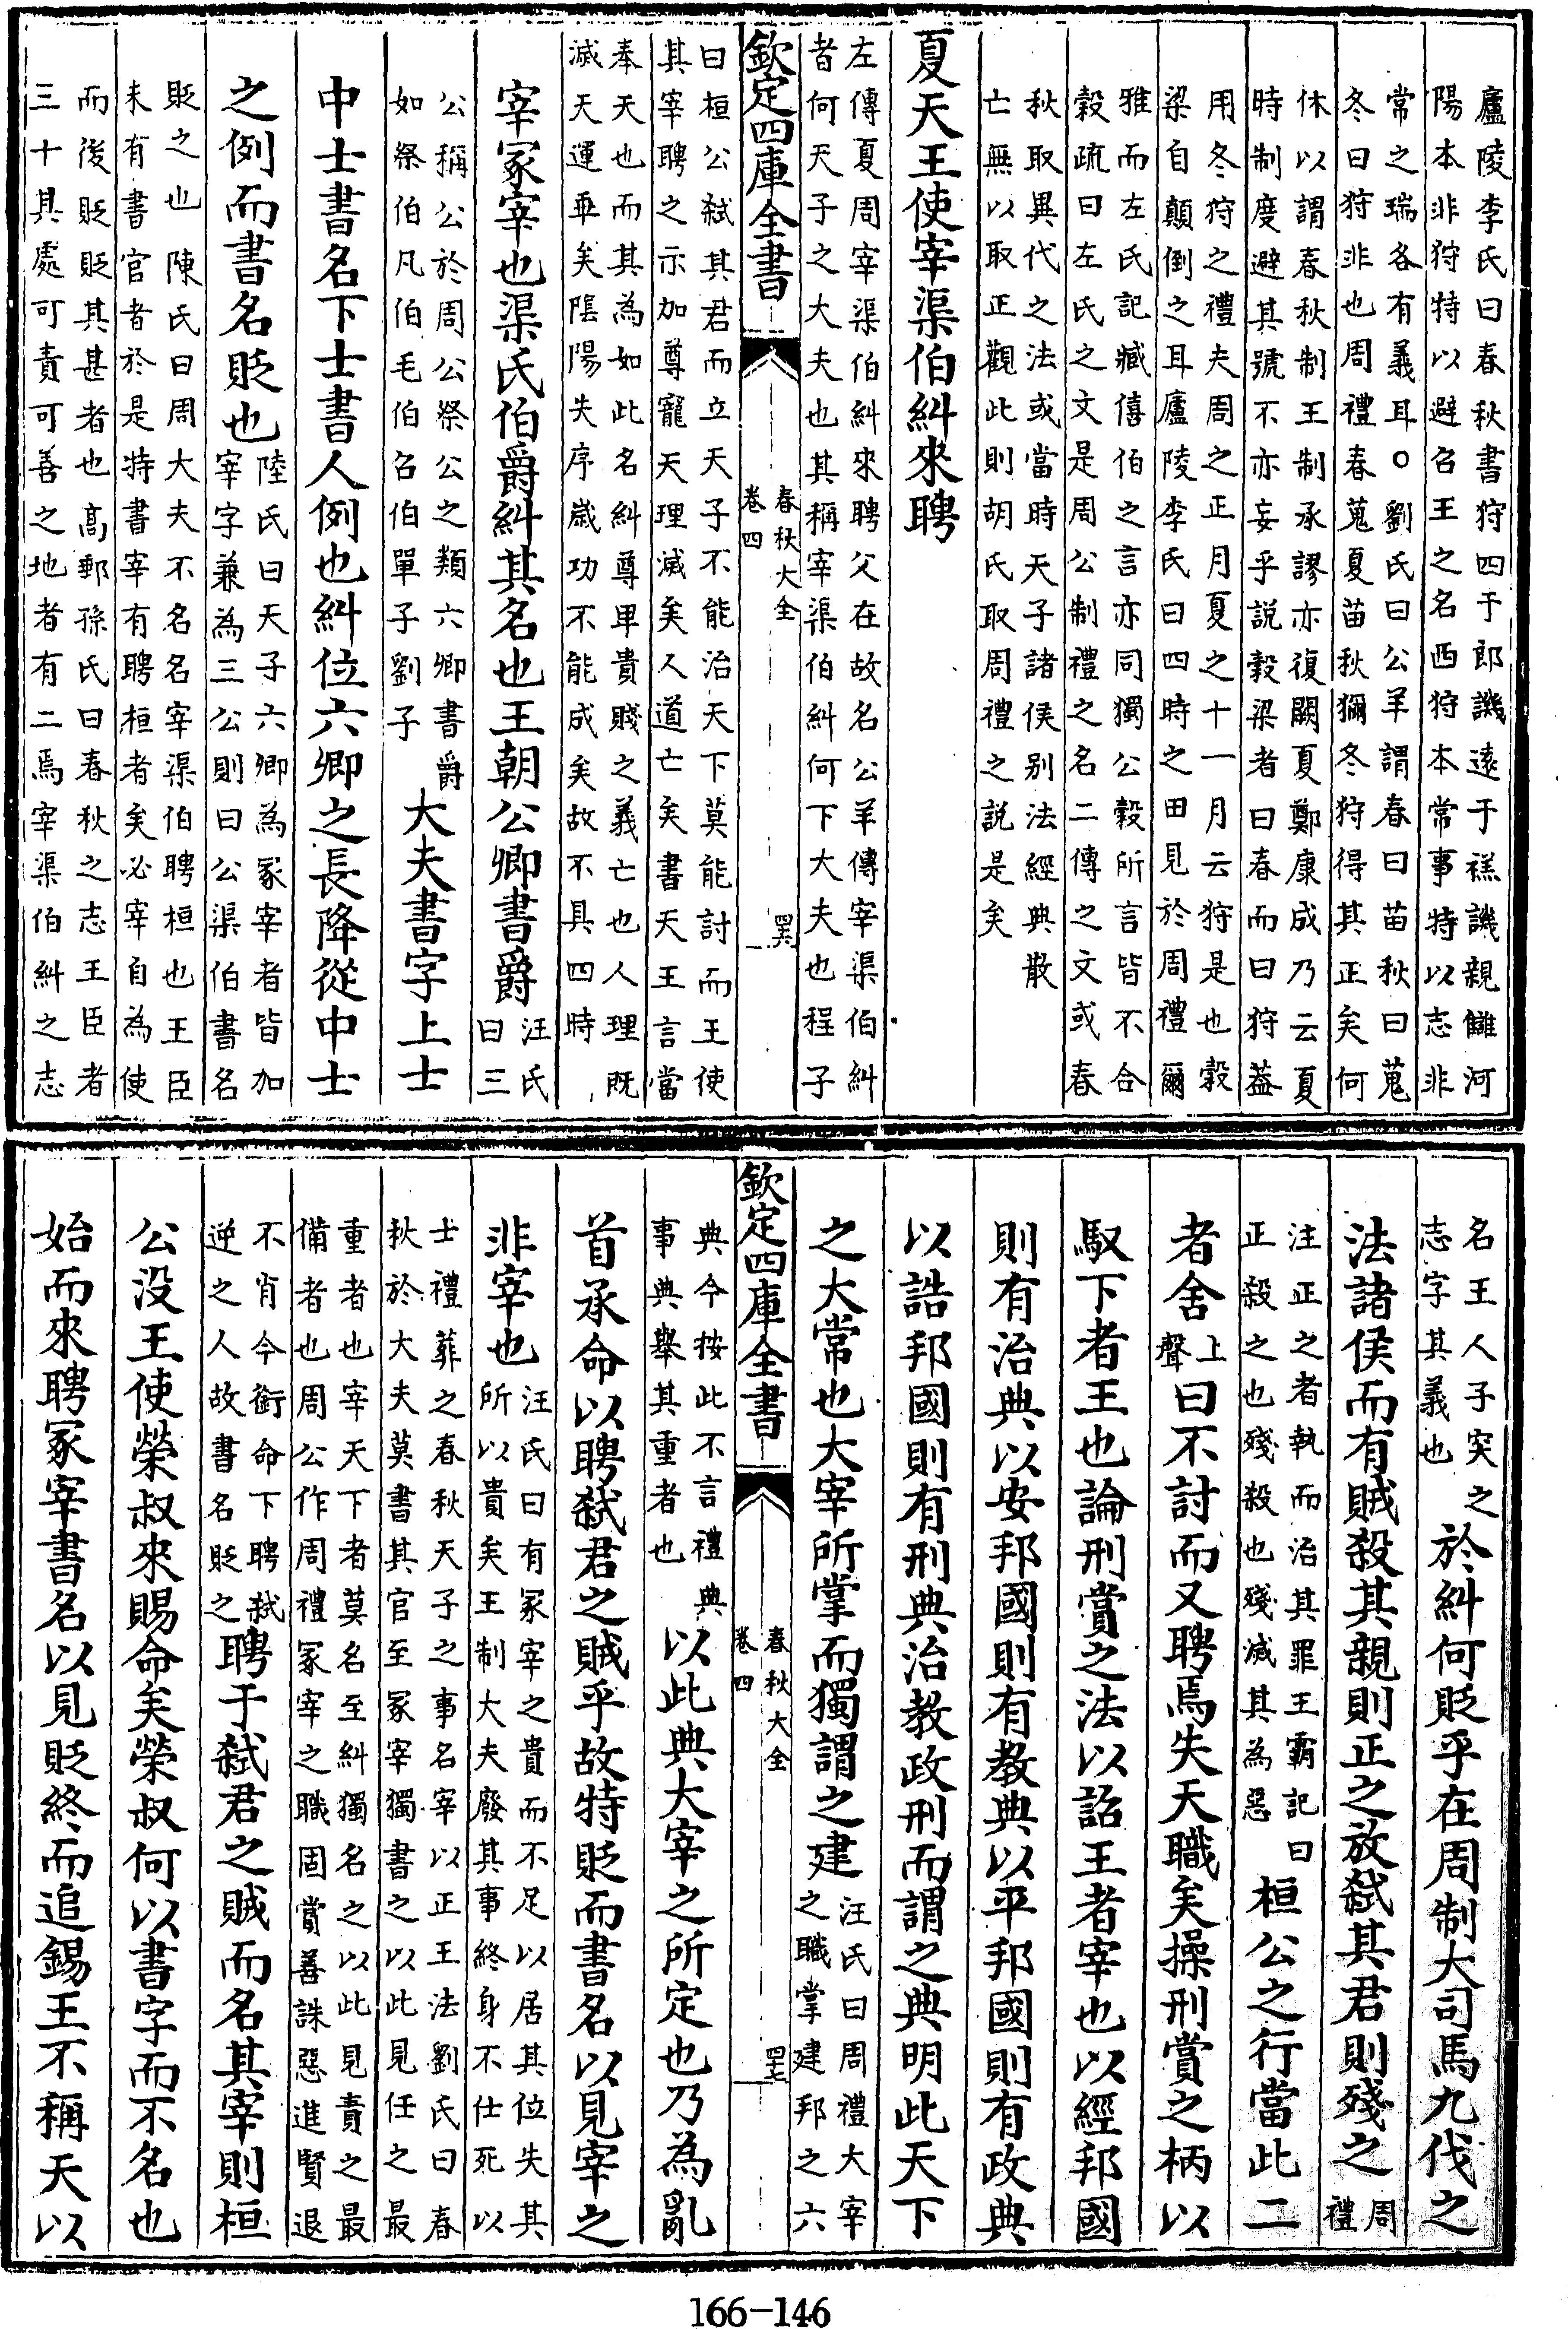 廬陵李氏曰春秋書狩四于郎譏遠于禚譏親讎河
陽本非狩特以避召王之名西狩本常事特以志非
常之瑞各有義耳○劉氏曰公羊謂春曰苗秋曰蒐
冬曰狩非也周禮春蒐夏苗秋獮冬狩得其正矣何
休以謂春秋制王制承謬亦復闕夏鄭康成乃云夏
時制度避其號不亦妄乎説穀梁者曰春而曰狩葢
用冬狩之禮夫周之正月夏之十一月云狩是也穀
梁自顛倒之耳廬陵李氏曰四時之田見於周禮爾
雅而左氏記臧僖伯之言亦同獨公穀所言皆不合
穀疏曰左氏之文是周公制禮之名二傳之文或春
秋取異代之法或當時天子諸侯别法經典散
亡無以取正觀此則胡氏取周禮之説是矣
夏天王使宰渠伯糾來聘
左傳夏周宰渠伯糾來聘父在故名公羊傳宰渠伯糾
者何天子之大夫也其稱宰渠伯糾何下大夫也程子
欽定四庫全書
春秋大全
卷四
四六
曰桓公弑其君而立天子不能治天下莫能討而王使
其宰聘之示加尊寵天理滅矣人道亡矣書天王言當
奉天也而其為如此名糾尊卑貴賤之義亡也人理既
滅天運乖矣隂陽失序歲功不能成矣故不具四時
宰冢宰也渠氏伯爵糾其名也王朝公卿書爵
汪氏
曰三
公稱公於周公祭公之類六卿書爵
如祭伯凡伯毛伯召伯單子劉子
大夫書字上士
中士書名下士書人例也糾位六卿之長降從中士
之例而書名貶也
陸氏曰天子六卿為冢宰者皆加
宰字兼為三公則曰公渠伯書名
貶之也陳氏曰周大夫不名名宰渠伯聘桓也王臣
未有書官者於是特書宰有聘桓者矣必宰自為使
而後貶貶其甚者也高郵孫氏曰春秋之志王臣者
三十其處可責可善之地者有二焉宰渠伯糾之志
名王人子突之
志字其義也
於糾何貶乎在周制大司馬九伐之
法諸侯而有賊殺其親則正之放弑其君則殘之
周
禮
注正之者執而治其罪王霸記曰
正殺之也殘殺也殘滅其為惡
桓公之行當此二
者舍
上
聲
曰不討而又聘焉失天職矣操刑賞之柄以
馭下者王也論刑賞之法以詔王者宰也以經邦國
則有治典以安邦國則有教典以平邦國則有政典
以詰邦國則有刑典治教政刑而謂之典明此天下
之大常也大宰所掌而獨謂之建
汪氏曰周禮大宰
之職掌建邦之六
欽定四庫全書
春秋大全
卷四
四七
典今按此不言禮典
事典舉其重者也
以此典大宰之所定也乃為亂
首承命以聘弑君之賊乎故特貶而書名以見宰之
非宰也
汪氏曰有冢宰之貴而不足以居其位失其
所以貴矣王制大夫廢其事終身不仕死以
士禮葬之春秋天子之事名宰以正王法劉氏曰春
秋於大夫莫書其官至冢宰獨書之以此見任之最
重者也宰天下者莫名至糾獨名之以此見責之最
備者也周公作周禮冢宰之職固賞善誅惡進賢退
不肖今銜命下聘弑
逆之人故書名貶之
聘于弑君之賊而名其宰則桓
公没王使榮叔來賜命矣榮叔何以書字而不名也
始而來聘冢宰書名以見貶終而追錫王不稱天以
166-146